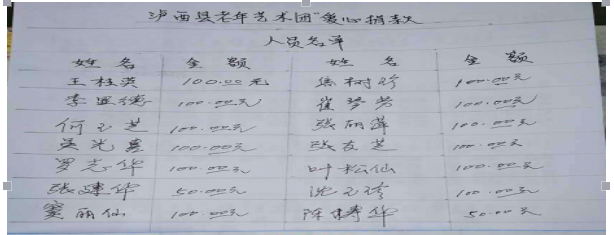 泸西县老年艺术团“爱心捐款
人员名单
姓 名 金 额 姓 名 金 额
王桂英 100.00元 树珍 100.00元
李 德 100.00元 崔琴芳 100.00元
何玉芝 100.00元 张丽萍 100.00元
吴光喜 100.00元 张友芝 100.00元
罗志华 100.00元 叶松仙 100.00元
张建华 50.00元 沈玉珍 100.00元
窦丽仙 100.00元 陈 华 50.00元